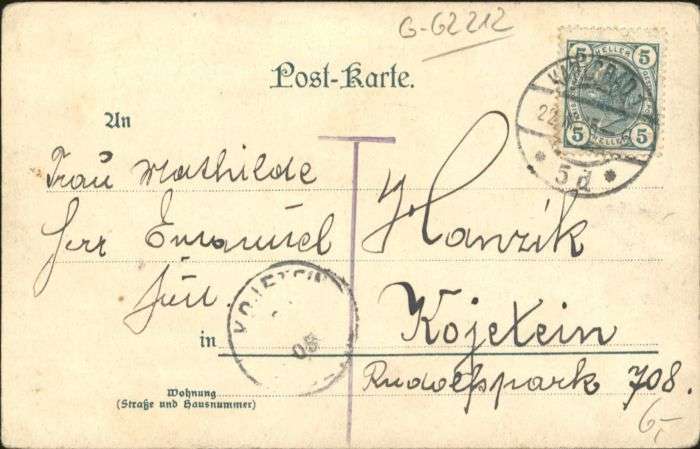 G-G2212
Post-Karte.
5 HELLER 5
5 HELLER 5
KARLSBAD 1
22
* 5 d *
An
Frau Mathilde
Herr Emanuel Hanzik
jun.
KOJETEIN
05
in Kojetein
Rudolfspark 708.
Wohnung
(Straße und Hausnummer)
6,-